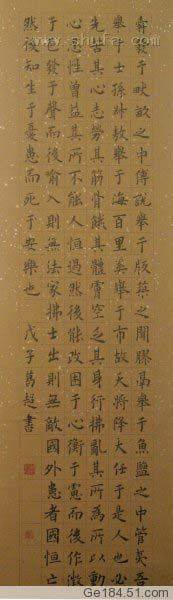 舜發于畎畝之中傅說舉于版築之間膠鬲舉于魚鹽之中管夷吾
舉于士孫叔敖舉于海百里奚舉于市故天將降大任于是人也必
先苦其心志勞其筋骨餓其體膚空乏其身行拂亂其所為所以動
心忍性曾益其所不能人恒過然後能改困于心衡于慮而後作徵
于色發于聲而後喻入則無法家拂士出則無敵國外患者國恒亡
然後知生于憂患而死于安樂也 戊子超書
Ge184.51.com